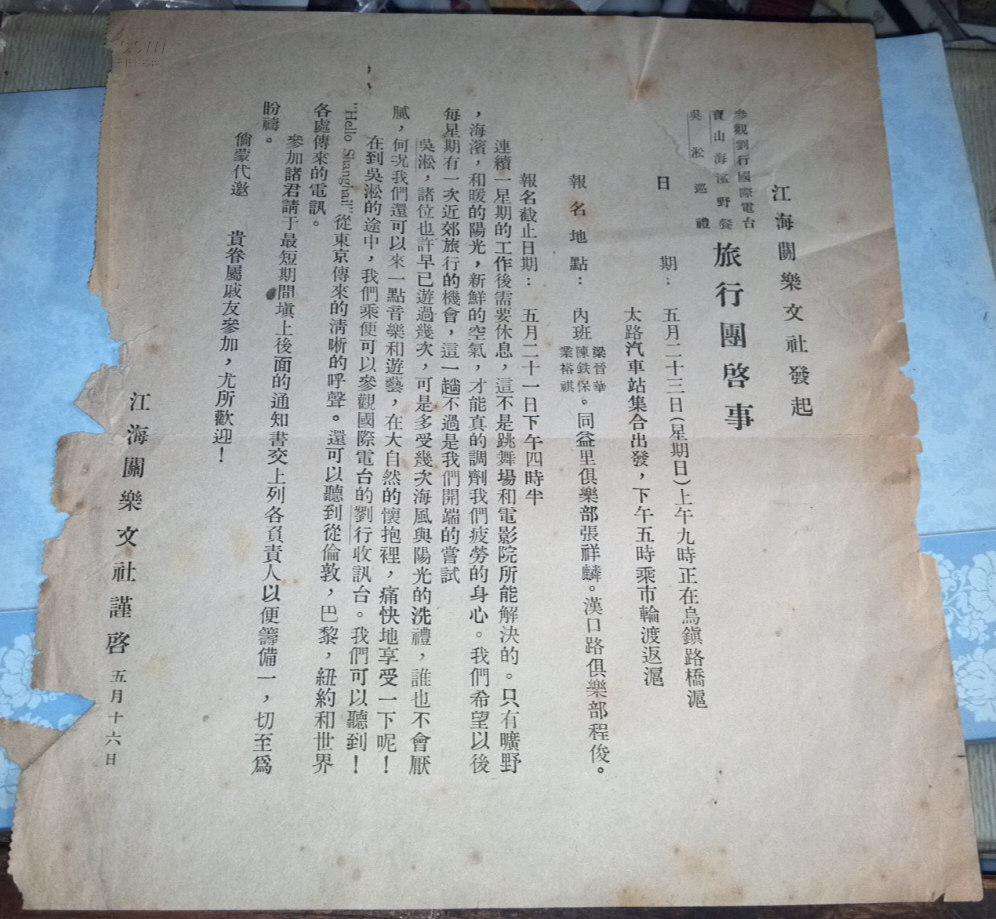 江海關樂文社發起
參觀劉行國際電台
寶山海濱野餐
吳淞巡禮
旅行團啓事
日期：五月二十三日（星期日）上午九時正在烏鎮路橋滬
太路汽車站集合出發，下午五時乘市輪渡返滬
報名地點：內班梁晉華
陳鉄保
業裕祺。同益里俱樂部張祥麟。漢口路俱樂部程俊。
報名截止日期：五月二十一日下午四時半
連續一星期的工作後需要休息，這不是跳舞場和電影院所能解決的。只有曠野
，海濱，和暖的陽光，新鮮的空氣，才能真的調劑我們疲勞的身心。我們希望以後
每星期有一次近郊旅行的機會，這一趟不過是我們開端的嘗試
吳淞，諸位也許早已遊過幾次，可是多受幾次海風與陽光的洗禮，誰也不會厭
膩，何况我們還可以來一點音樂和遊藝，在大自然的懷抱裡，痛快地享受一下呢！
在到吳淞的途中，我們乘便可以參觀國際電台的劉行收訊台。我們可以聽到！
"Hello Shanghai"從東京傳來的清晰的呼聲。還可以聽到從倫敦，巴黎，紐約和世界
各處傳來的電訊。
參加諸君請于最短期間塡上後面的通知書交上列各負責人以便籌備一，切至爲
盼禱。
倘蒙代邀　貴眷屬戚友參加，尤所歡迎！
江海關樂文社謹啓 五月十六日